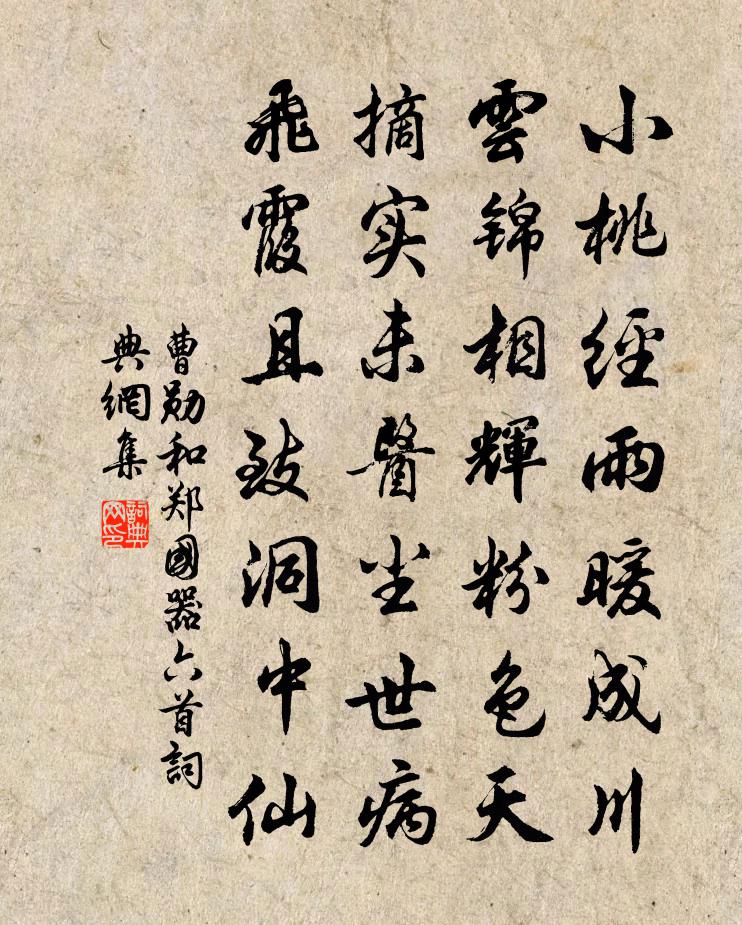 小桃經雨暖成川
雲錦相輝粉色天
摘实未醫尘世病
飛霞且致洞中仙
曹勛和郑國器六首詞
典網集
詞典
网印